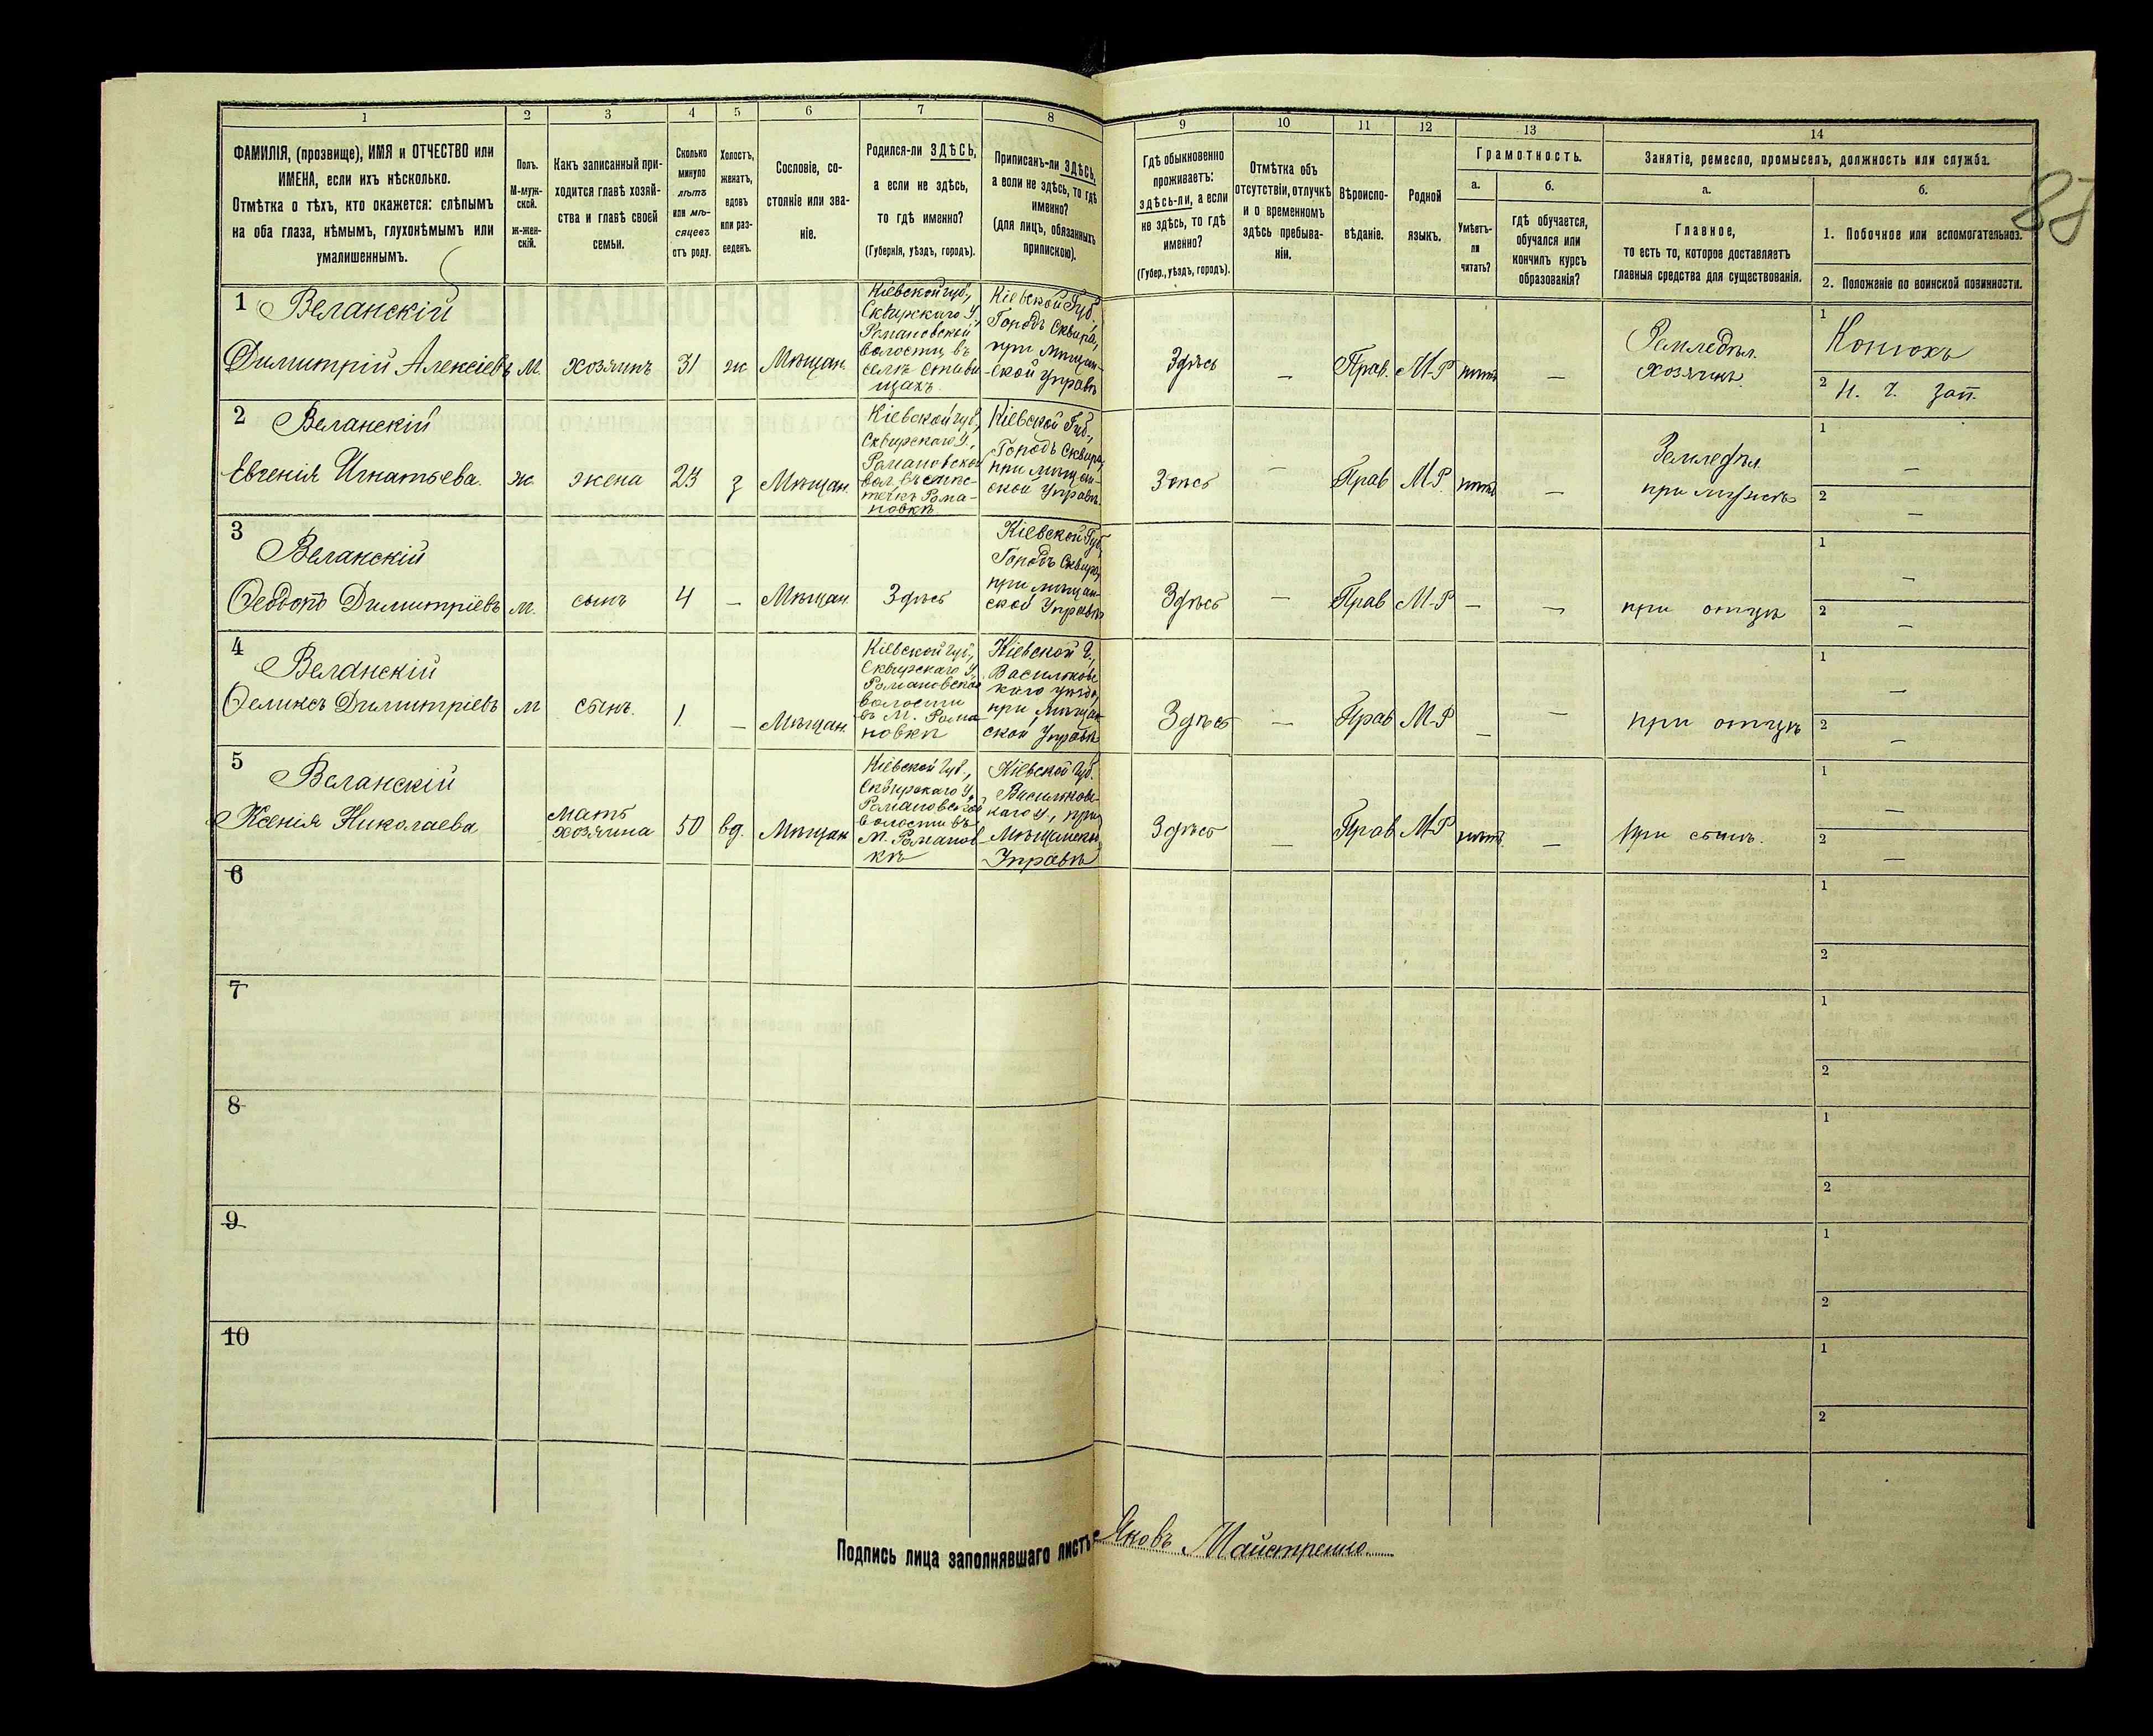 1 2 3 4 5 6 7 8 9 10 11 12 13 14
ФАМИЛІЯ, (прозвище), ИМЯ и ОТЧЕСТВО или
ИМЕНА, если ихъ нѣсколько.
Отмѣтка о тѣхъ, кто окажется: слѣпымъ
на оба глаза, нѣмымъ, глухонѣмымъ или
умалишеннымъ.
Полъ.
М-муж-
ской.
ж-жен-
скій.
Какъ записанный при-
ходится главѣ хозяй-
ства и главѣ своей
семьи.
Сколько
минуло
лѣтъ
или мѣ-
сяцевъ
отъ роду.
Холостъ,
женатъ,
вдовъ
или раз-
веденъ.
Сословіе, со-
стояніе или зва-
ніе.
Родился-ли ЗДѢСЬ,
а если не здѣсь,
то гдѣ именно?
(Губернія, уѣздъ, городъ).
Приписанъ-ли ЗДѢСЬ,
а если не здѣсь, то гдѣ
именно?
(для лицъ, обязанныхъ
припискою).
Гдѣ обыкновенно
проживаетъ:
здѣсь-ли, а если
не здѣсь, то гдѣ
именно?
(Губер., уѣздъ, городъ).
Отмѣтка объ
отсутствіи, отлучкѣ
и о временномъ
здѣсь пребыва-
ніи.
Вѣроиспо-
вѣданіе.
Родной
языкъ.
Грамотность.
а.
Умѣетъ-
ли
читать?
б.
гдѣ обучается,
обучался или
кончилъ курсъ
образованія?
Занятіе, ремесло, промыселъ, должность или служба.
а.
Главное,
то есть то, которое доставляетъ
главныя средства для существованія.
б.
1. Побочное или вспомогательное.
2. Положеніе по воинской повинности.
88
1 Веланскій
Димитрій Алексіевъ
М.
хозяинъ
31
ж
Мѣщан.
Кіевской губ.,
Сквирскаго У.,
Романовской
волости, въ
селѣ Стави
щахъ.
Кіевской Губ.,
Городъ Сквира,
при мѣщан-
ской Управѣ
Здѣсь
—
Прав.
М-Р
нѣтъ
—
Земледѣл.
хозяинъ.
1 Конюхъ
2 Н. Ч. Зап.
2 Веланскій
Евгенія Игнатьева.
ж
жена
23
з
Мѣщан.
Кіевской губ.,
Сквирскаго У.,
Романовской
вол. въ мѣс-
течкѣ Рома-
новкѣ
Кіевской Губ.,
Городъ Сквира,
при мѣщан-
ской Управѣ.
Здѣсь
—
Прав
М-Р.
нѣтъ
—
Земледѣл.
при мужѣ
1 —
2 —
3
Веланскій
Ѳеодотъ Димитріевъ
М.
сынъ
4
—
Мѣщан.
Здѣсь
Кіевской Губ.
Городъ Сквира,
при мѣщан-
ской Управѣ
Здѣсь
—
Прав
М-Р
—
—
при отцѣ
1 —
2 —
4
Веланскій
Ѳеликсъ Димитріевъ
М
сынъ.
1.
—
Мѣщан.
Кіевской губ.,
Сквирскаго У,
Романовской
волости
въ М. Рома-
новкѣ
Кіевской Г.,
Васильковс
каго уѣзда,
при мѣщан-
ской Управѣ
Здѣсь
—
Прав
М-Р
—
—
при отцѣ
1 —
2 —
5
Веланскій
Ксенія Николаева
мать
хозяина
50
вд.
Мѣщан
Кіевской Губ.,
Сквирскаго У,
Романовской
волости въ
М. Романов-
кѣ
Кіевской Губ.
Васильковс-
каго У, при
Мѣщанской
Управѣ
Здѣсь
—
Прав
М-Р
нѣтъ
—
при сынѣ.
1 —
2 —
6
1
2
7
1
2
8
1
2
9
1
2
10
1
2
Подпись лица заполнявшаго листъ: Яковъ Майстренко